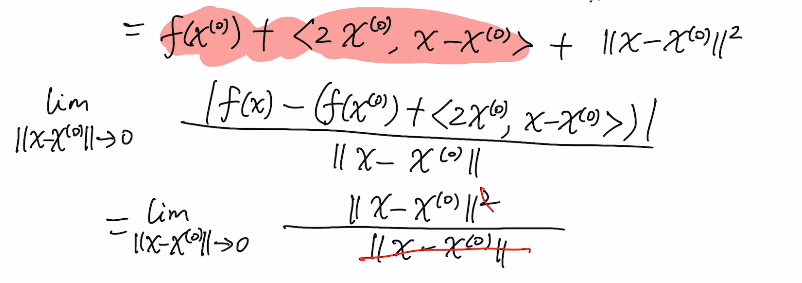 = f(x⁽⁰⁾) + <2x⁽⁰⁾, x-x⁽⁰⁾> + ||x-x⁽⁰⁾||²
lim ||x-x⁽⁰⁾||→0 |f(x) - (f(x⁽⁰⁾) + <2x⁽⁰⁾, x-x⁽⁰⁾>)| / ||x-x⁽⁰⁾||
= lim ||x-x⁽⁰⁾||→0 ||x-x⁽⁰⁾||² / ||x-x⁽⁰⁾||